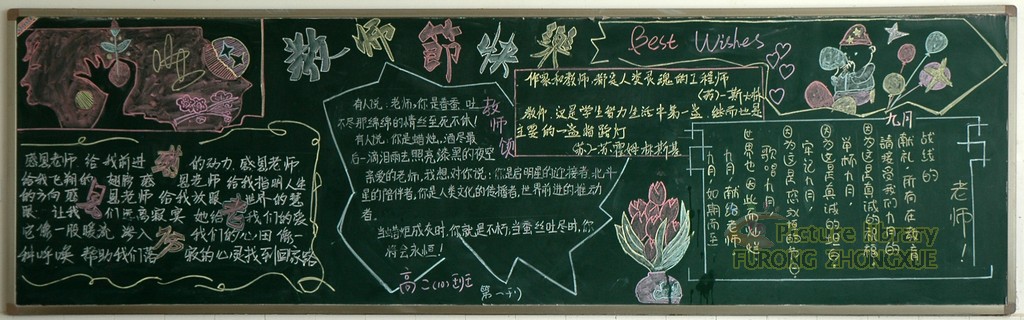 教师節快乐
Best Wishes
感恩老师 给我前进 动 的力 感恩老师
给我飞翔的 翅膀 感恩老师 给我指明人生
的方向 感恩老师 给我放眼 世界的慧
眼 让我 们远离寂寞 她给 我们的爱
像一股暖流 渗入 我们的心田 像一
种呼唤 帮助我们落 寂的心灵找到回家路
教师颂
有人说:老师,你是春蚕,吐
不尽那绵绵的情丝至死不休!
有人说:你是蜡烛,洒尽最
后一滴泪而去照亮漆黑的夜空
亲爱的老师,我想对你说:你是启明星的迎接者,北斗
星的陪伴者,你是人类文化的传播者,世界前进的推动
者。
当蜡炬成灰时,你就是不朽,当蚕丝吐尽时,你
将会永恒!
高二(10)班
第一刊
作家和教师,都是人类灵魂的工程师
(苏)—斯大林
教师,这是学生智力生活中第一盏,继而也是
主要的一盏指路灯
(苏)—苏霍姆林斯基
老师!
战线的
献礼,所有在教育
请接受我们九月的
九月
因为这是真诚的祝福
举杯九月,
因为这是真诚的坦言
牢记九月,
因为这是感恩
歌唱九月,
世界也因此而
九月,献给老师
九月,如期而至
Picture library
FURONG ZHONGXUE